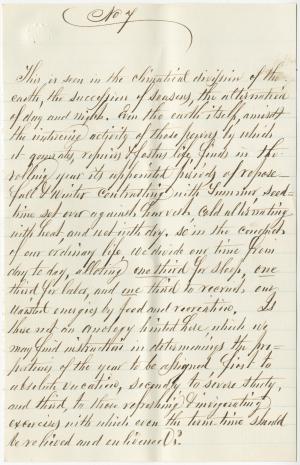 No 7
This is seen in the climatical division of the
earth, the succession of seasons, the alternation
of day and night. Even the earth itself, amidst
the untiring activity of those powers by which
it generates, repairs & fosters life, finds in the
rolling year its appointed periods of repose-
Fall & Winter contrasting with Summer, seed-
time set over against harvest, cold alternating
with heat, and wet with dry, so in the
of our ordinary life, we divide our time from
day to day, allotting one third for sleep, one
third for labor, and one third to recruit our
wasted energies by food and recreation. Is
there not an analogy hinted here, which we
may find instruction in determining the pro-
portions of the year to be assigned, first to
absolute vacation, secondly to severe study,
and third, to those refreshing & invigorating
exercises with which even the term-time should
be relieved and enlivened?